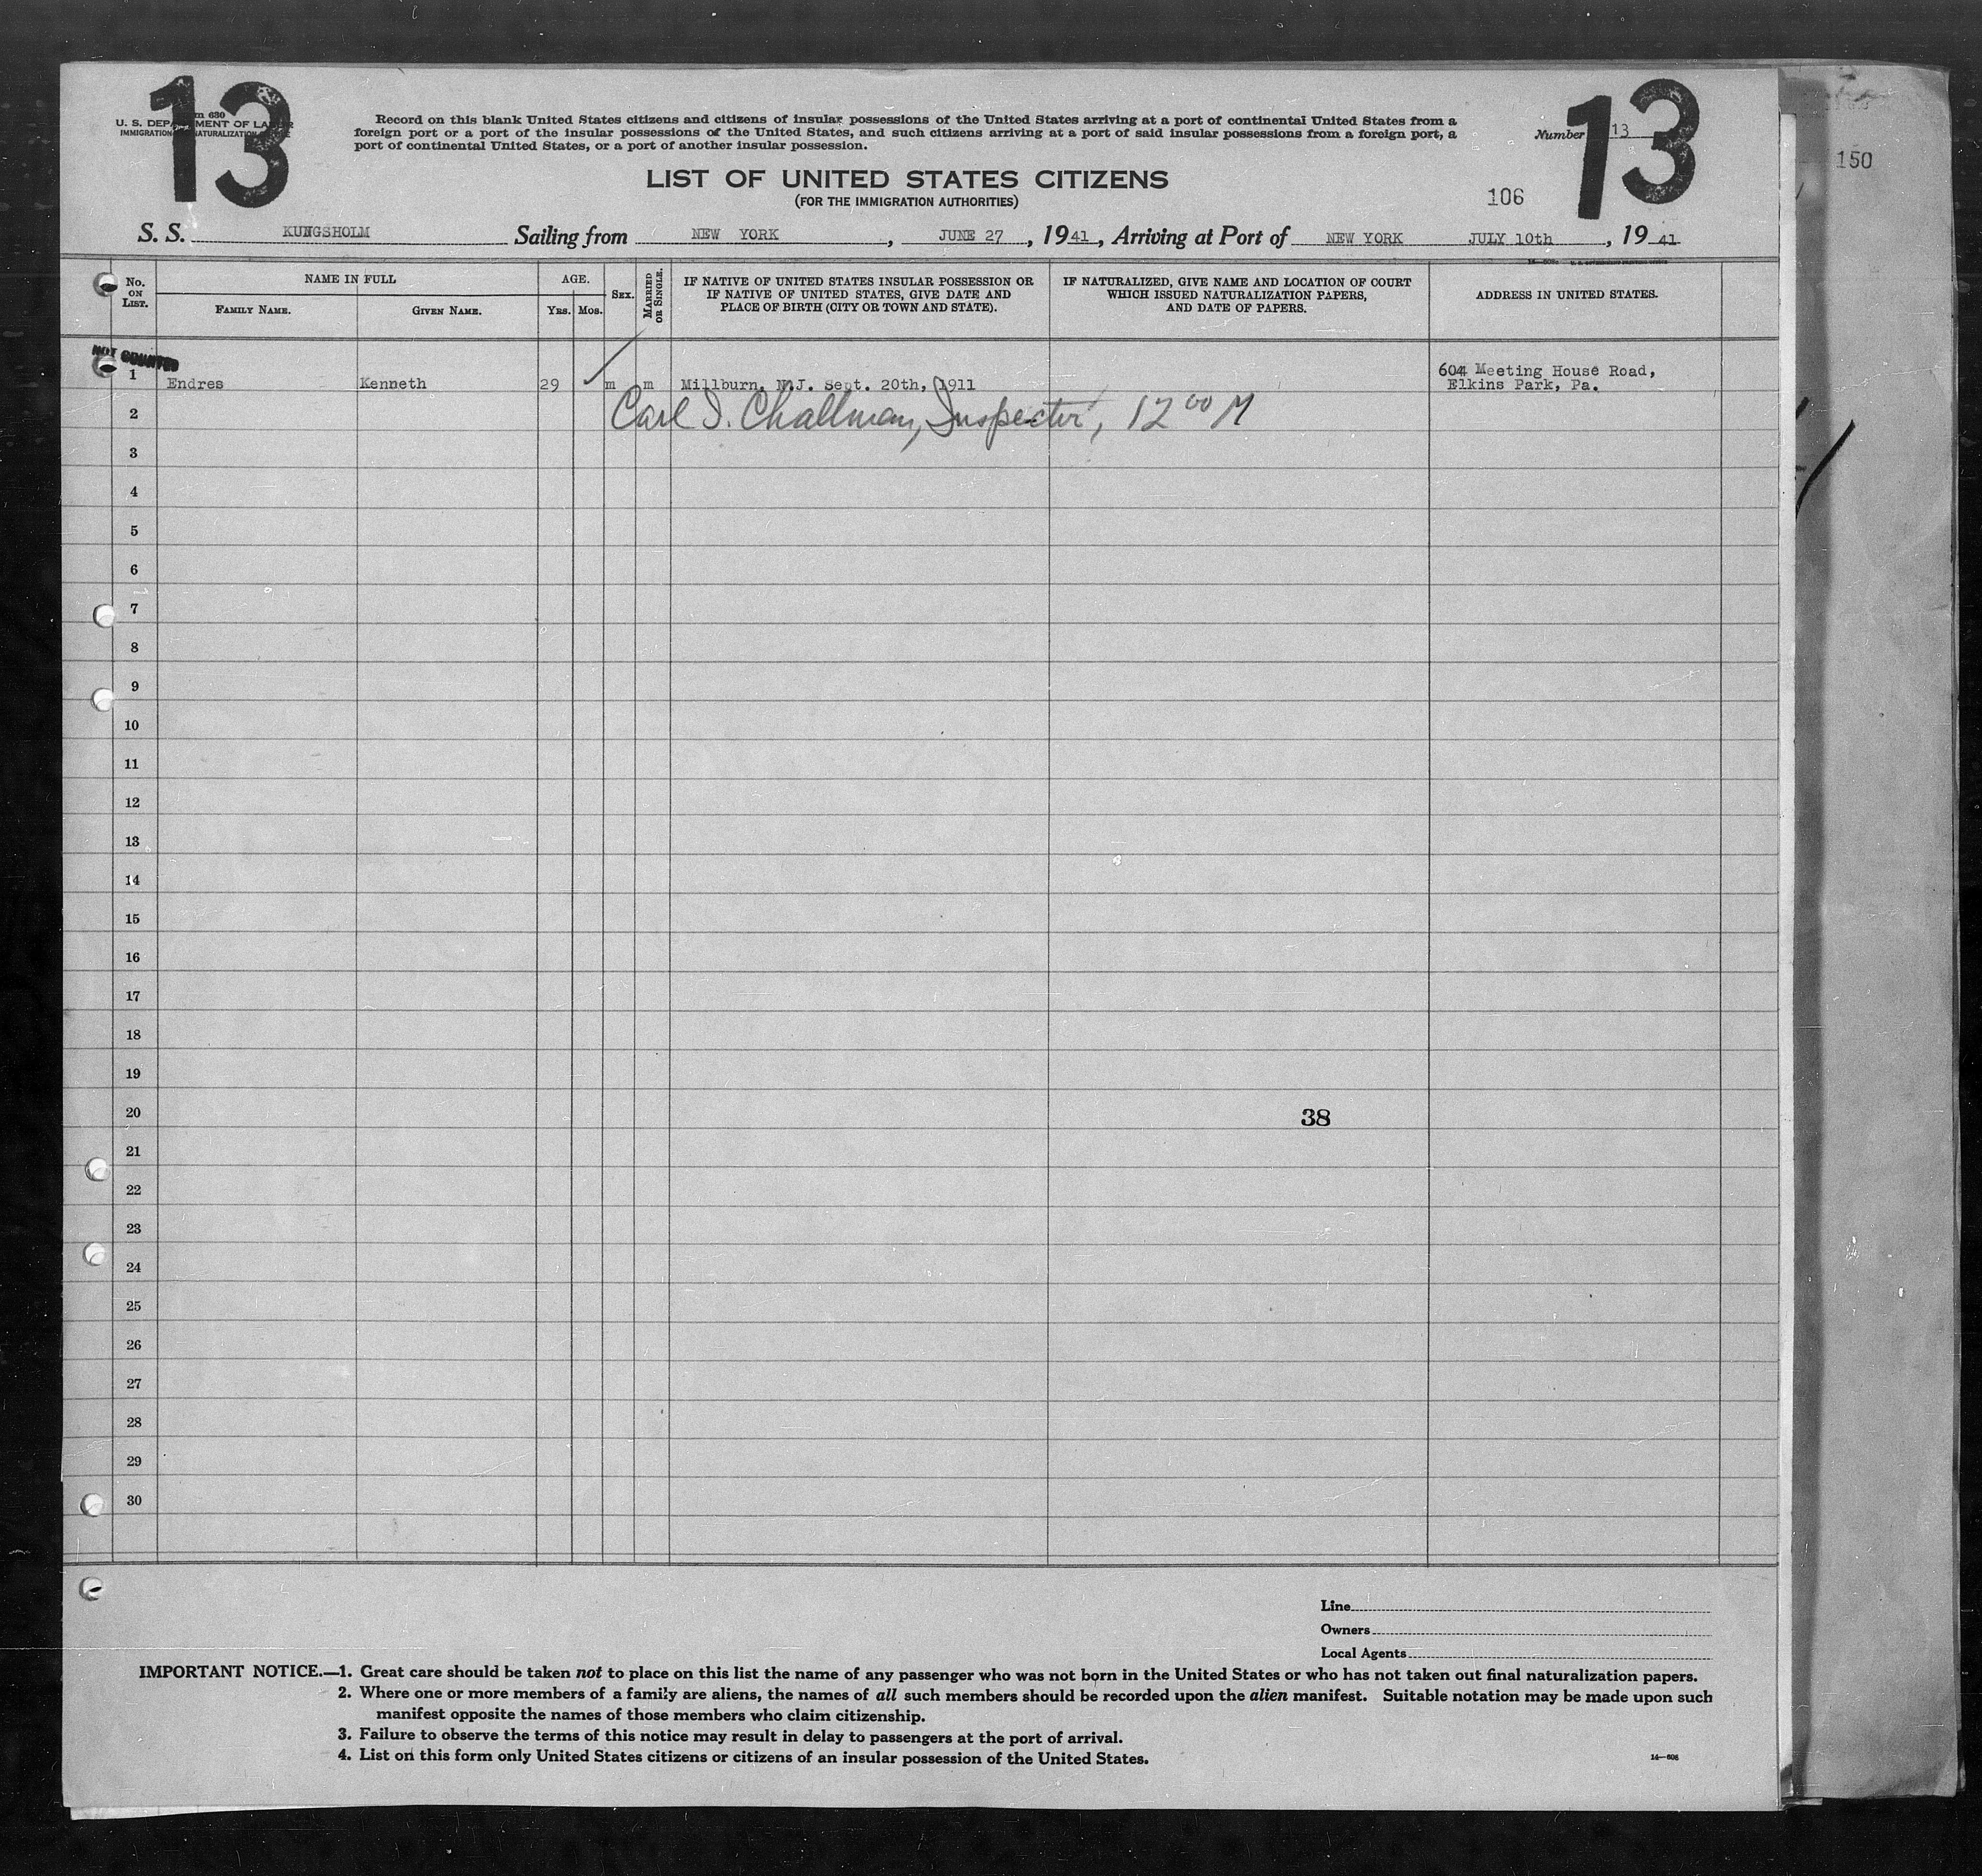 13
13
Form 630
U. S. DEPARTMENT OF LABOR
IMMIGRATION NATURALIZATION
Record on this blank United States citizens and citizens of insular possessions of the United States arriving at a port of continental United States from a
foreign port or a port of the insular possessions of the United States, and such citizens arriving at a port of said insular possessions from a foreign port, a
port of continental United States, or a port of another insular possession.
Number 13
150
LIST OF UNITED STATES CITIZENS
(FOR THE IMMIGRATION AUTHORITIES)
106
S. S. KUNGSHOLM Sailing from NEW YORK, JUNE 27, 1941, Arriving at Port of NEW YORK JULY 10th, 1941
No. ON LIST.
NAME IN FULL
FAMILY NAME. GIVEN NAME.
AGE.
YRS. MOS.
SEX.
MARRIED OR SINGLE.
IF NATIVE OF UNITED STATES INSULAR POSSESSION OR
IF NATIVE OF UNITED STATES, GIVE DATE AND
PLACE OF BIRTH (CITY OR TOWN AND STATE).
IF NATURALIZED, GIVE NAME AND LOCATION OF COURT
WHICH ISSUED NATURALIZATION PAPERS,
AND DATE OF PAPERS.
ADDRESS IN UNITED STATES.
NOT COUNTED
1 Endres Kenneth 29 m m Millburn, N.J. Sept. 20th, 1911 604 Meeting House Road,
Elkins Park, Pa.
2 Carl I. Challman, Inspector, 12 00 M
3
4
5
6
7
8
9
10
11
12
13
14
15
16
17
18
19
20 38
21
22
23
24
25
26
27
28
29
30
Line
Owners
Local Agents
IMPORTANT NOTICE.—1. Great care should be taken not to place on this list the name of any passenger who was not born in the United States or who has not taken out final naturalization papers.
2. Where one or more members of a family are aliens, the names of all such members should be recorded upon the alien manifest. Suitable notation may be made upon such
manifest opposite the names of those members who claim citizenship.
3. Failure to observe the terms of this notice may result in delay to passengers at the port of arrival.
4. List on this form only United States citizens or citizens of an insular possession of the United States.
14—606